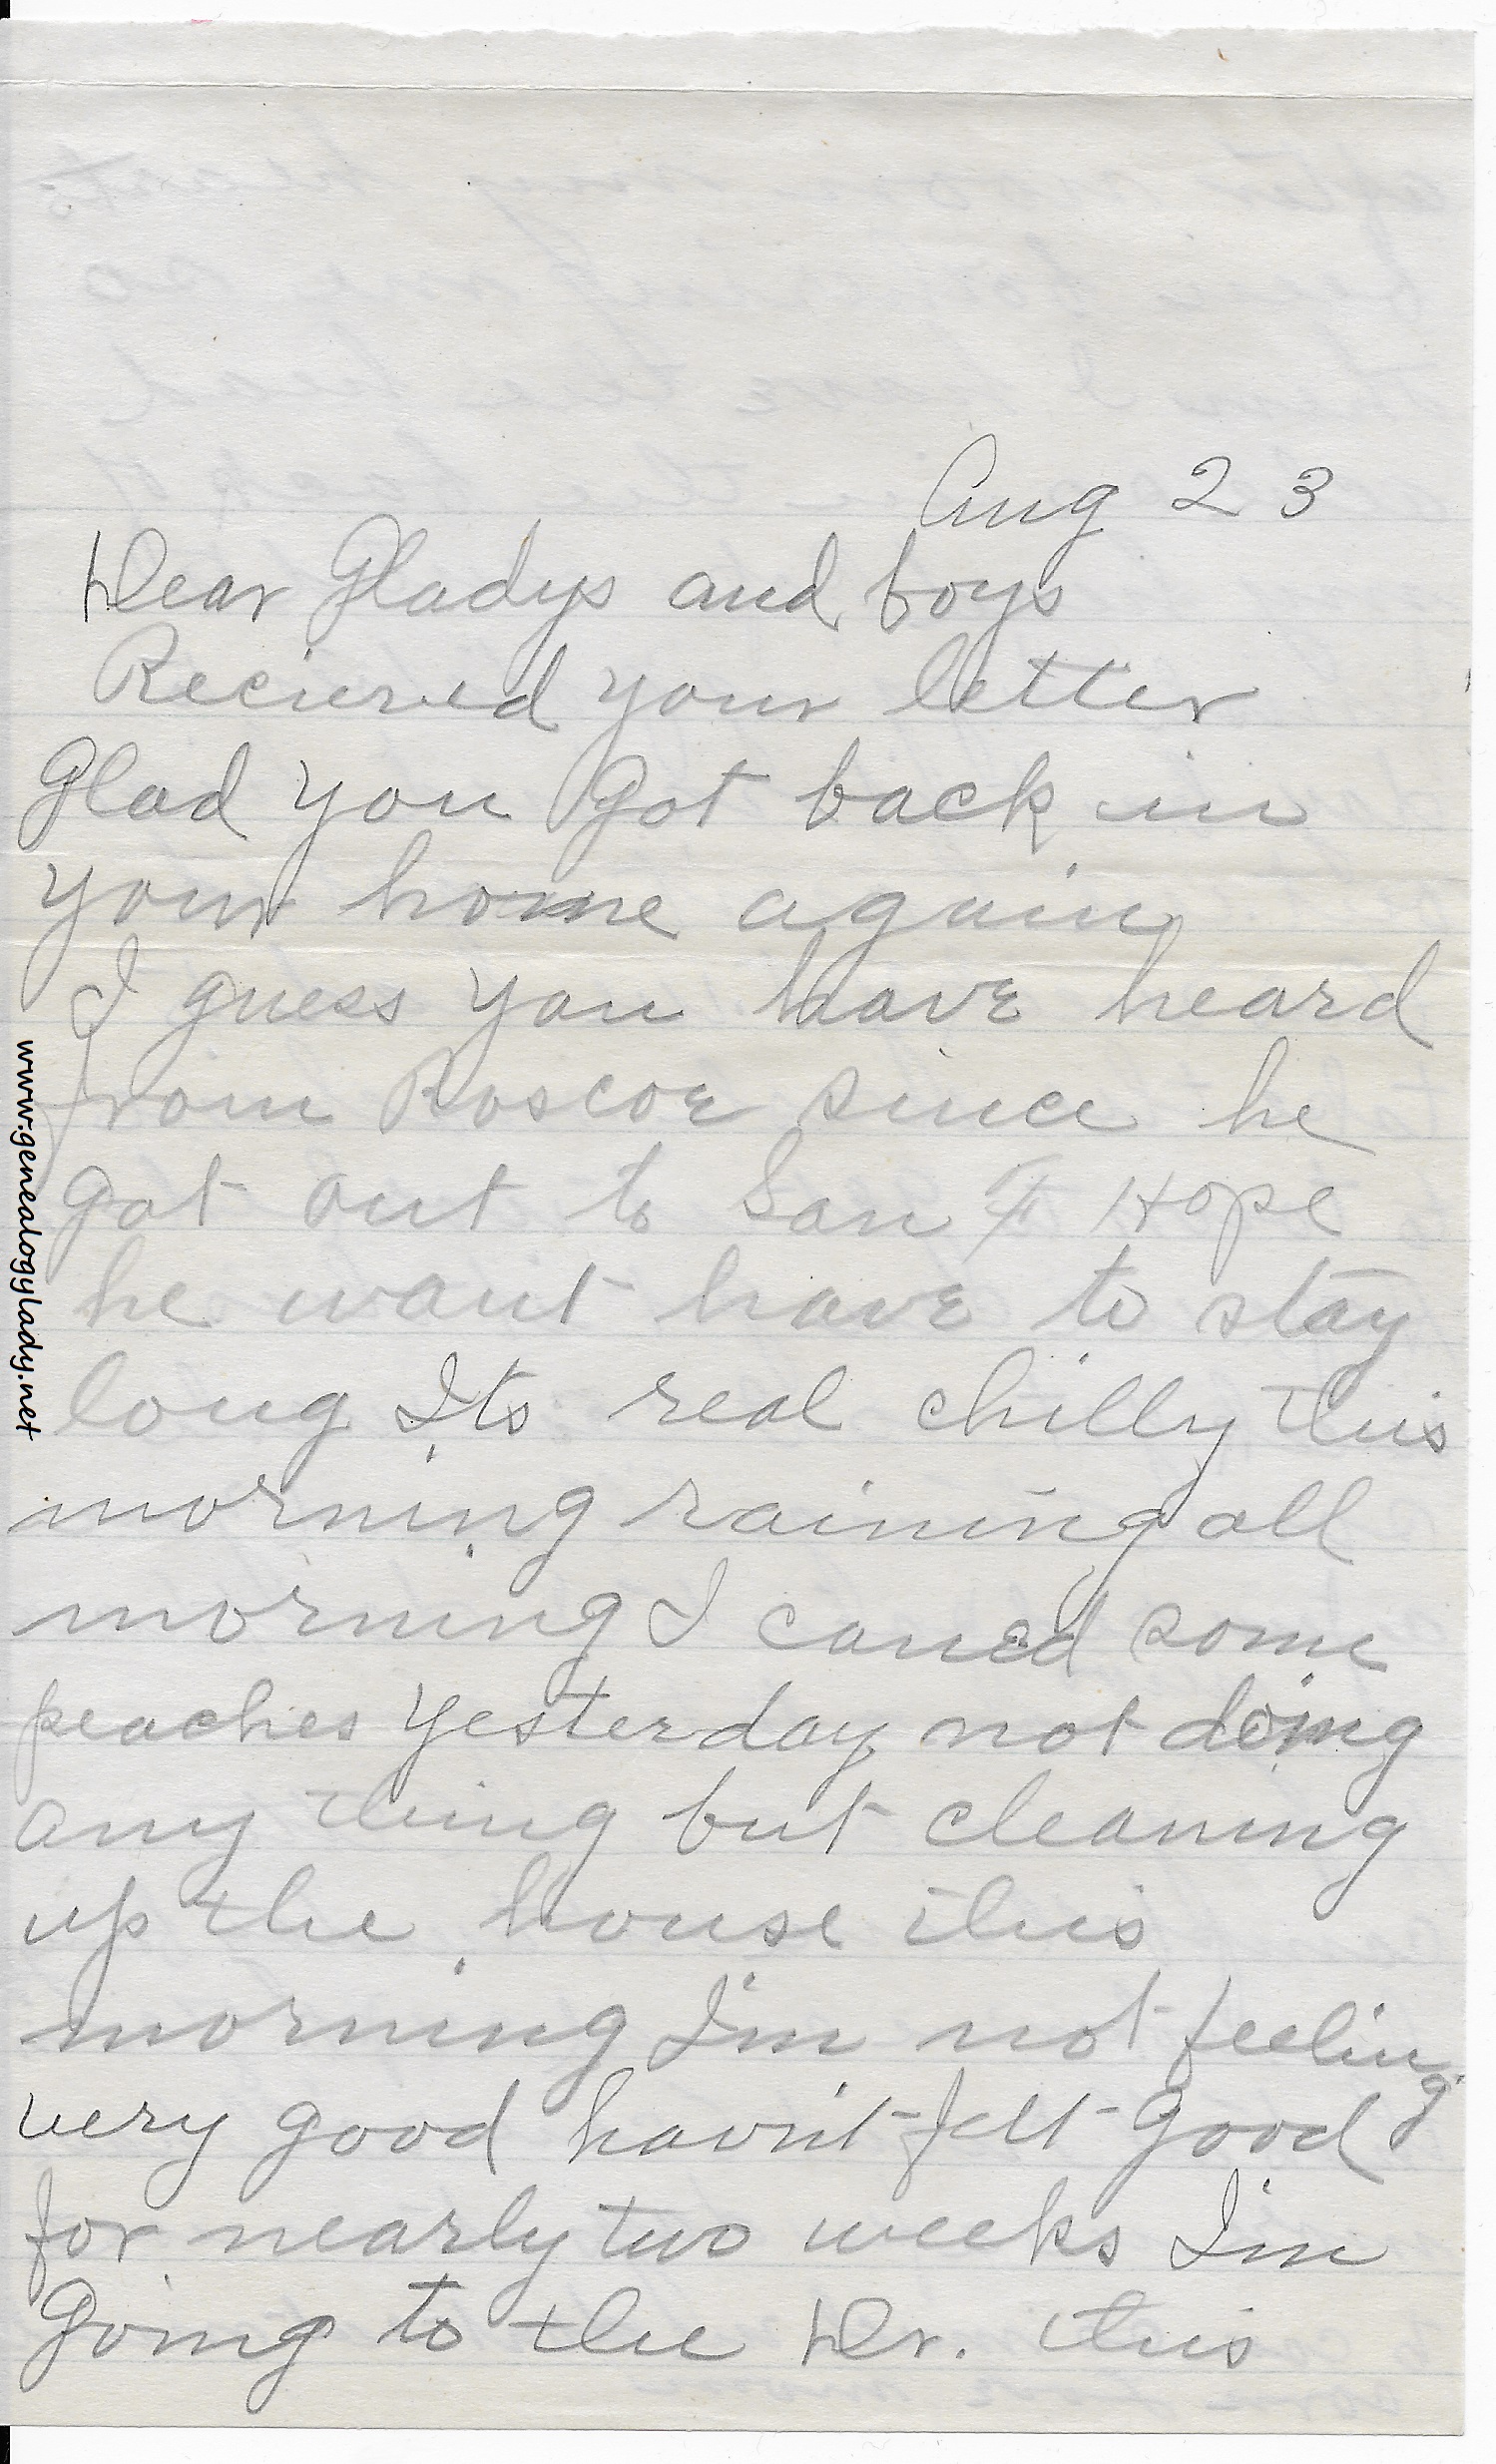 Aug 23
Dear Gladys and boys
Recieved your letter
Glad you Got back in
your home again
I guess you have heard
from Roscoe since he
got out to San F Hope
he want have to stay
long Its real chilly this
morning raining all
morning I caned some
peaches yesterday not doing
any thing but cleaning
up the house this
morning I'm not feeling
very good havn't felt Good
for nearly two weeks I'm
Going to the Dr. this
www.genealogylady.net